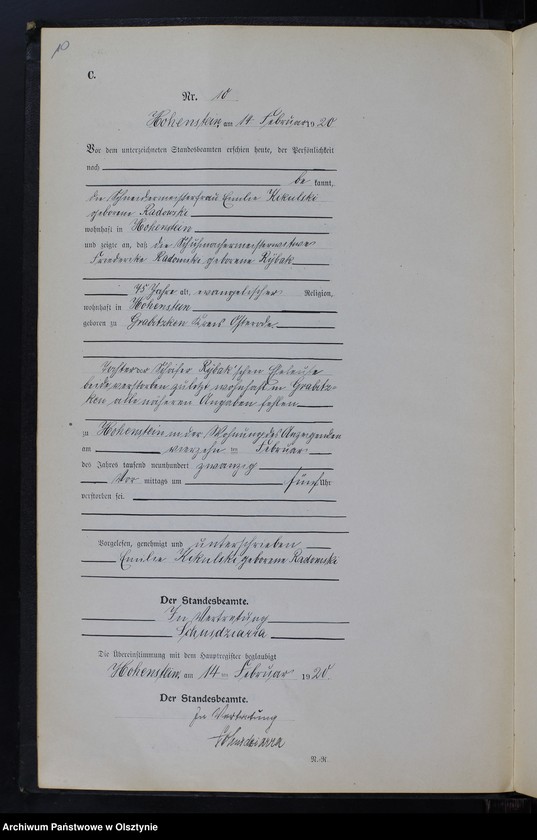 10
C.
Nr. 10
Hohenstein, am 14 Februar 1920
Vor dem unterzeichneten Standesbeamten erschien heute, der Persönlichkeit
nach
be kannt,
die Schneidermeisterfrau Emilie Kikulski
geborene Radomski
wohnhaft in Hohenstein
und zeigte an, daß die Schuhmachermeisterwitwe
Friederike Radomski geborene Rybak
75 Jahre alt, evangelischer Religion,
wohnhaft in Hohenstein
geboren zu Grabitzken Kreis Osterode
Tochter der Schäfer Rybak'schen Eheleute
beide verstorben zuletzt wohnhaft in Grabitz-
ken alle näheren Angaben fehlen
zu Hohenstein in der Wohnung des Anzeigenden
am vierzehn ten Februar
des Jahres tausend neunhundert zwanzig
Vor mittags um fünf Uhr
verstorben sei.
Vorgelesen, genehmigt und unterschrieben
Emilie Kikulski geborene Radomski
Der Standesbeamte.
In Vertretung
Die Übereinstimmung mit dem Hauptregister beglaubigt
Hohenstein, am 14 ten Februar 1920.
Der Standesbeamte.
In Vertretung
N.-R
Archiwum Państwowe w Olsztynie